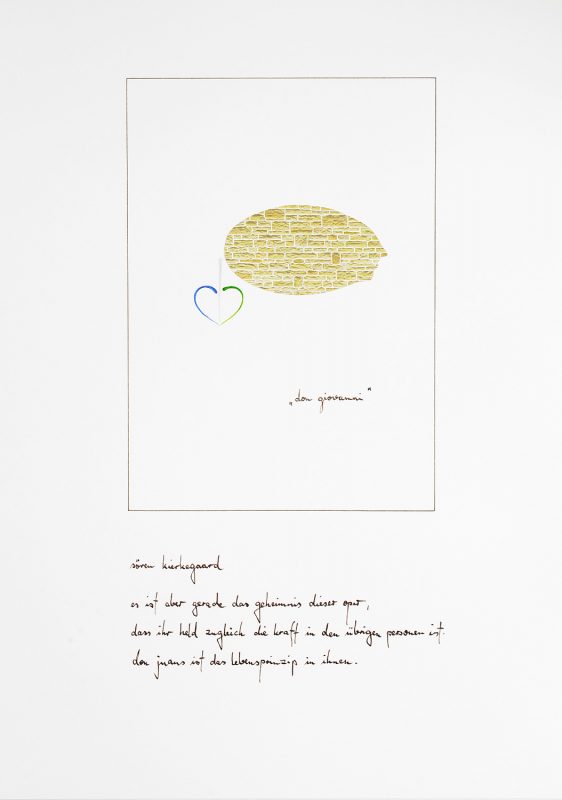 „don giovanni“
sören kierkegaard
es ist aber gerade das geheimnis dieser oper,
dass ihr held zugleich die kraft in den übrigen personen ist.
don juans ist das lebensprinzip in ihnen.